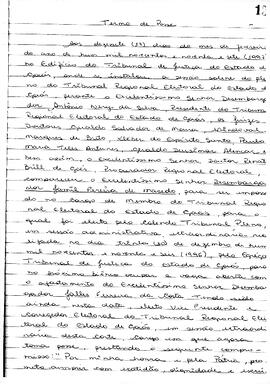 1
Termo de Posse
Aos dezessete (17) dias do mês de
do ano de hum mil novecentos e noventa e sete (1997)
no Edifício do Tribunal de Justiça do Estado de
Goiás, onde se instalou a sessão solene do Ple
no do Tribunal Regional Eleitoral do Estado de
Goiás, presente o Excelentíssimo Senhor Desembarga
dor Antônio Nery da Silva, Presidente do Tribunal
Regional Eleitoral do Estado de Goiás, os juízes
Doutores Geraldo Salvador de Moura,
Marques de Brito, de Espírito Santo, Paulo
Maria Teles Antunes, Geraldo,
bem assim, o Excelentíssimo Senhor Doutor
de Goiás, Procurador Regional Eleitoral,
compareceu o Excelentíssimo Senhor Desembarga
dor Jamil Pereira de Macedo para
no cargo de Membro do Tribunal Regio
nal Eleitoral do Estado de Goiás, para o
qual foi eleito pelo Colendo Tribunal Pleno,
em sessão administrativa extraordinária rea
lizada no dia trinta (30) de dezembro de hum
mil novecentos e noventa e seis (1996), pelo Egrégio
Tribunal de Justiça do Estado de Goiás, para
no próximo biênio ocupar a vaga aberta com
o afastamento do Excelentíssimo Senhor Desembar
gador Jalles Ferreira da Costa. Tendo sido
ainda, nesta data, eleito Vice-Presidente e
Corregedor Eleitoral do Tribunal Regional Elei
toral do Estado de Goiás, em sessão extraordi
nária desta Corte, cargo em que agora
toma posse, prestando o seguinte compro
misso: "Por minha honra e pela Pátria, pro
meto exercer com exatidão, dignidade e